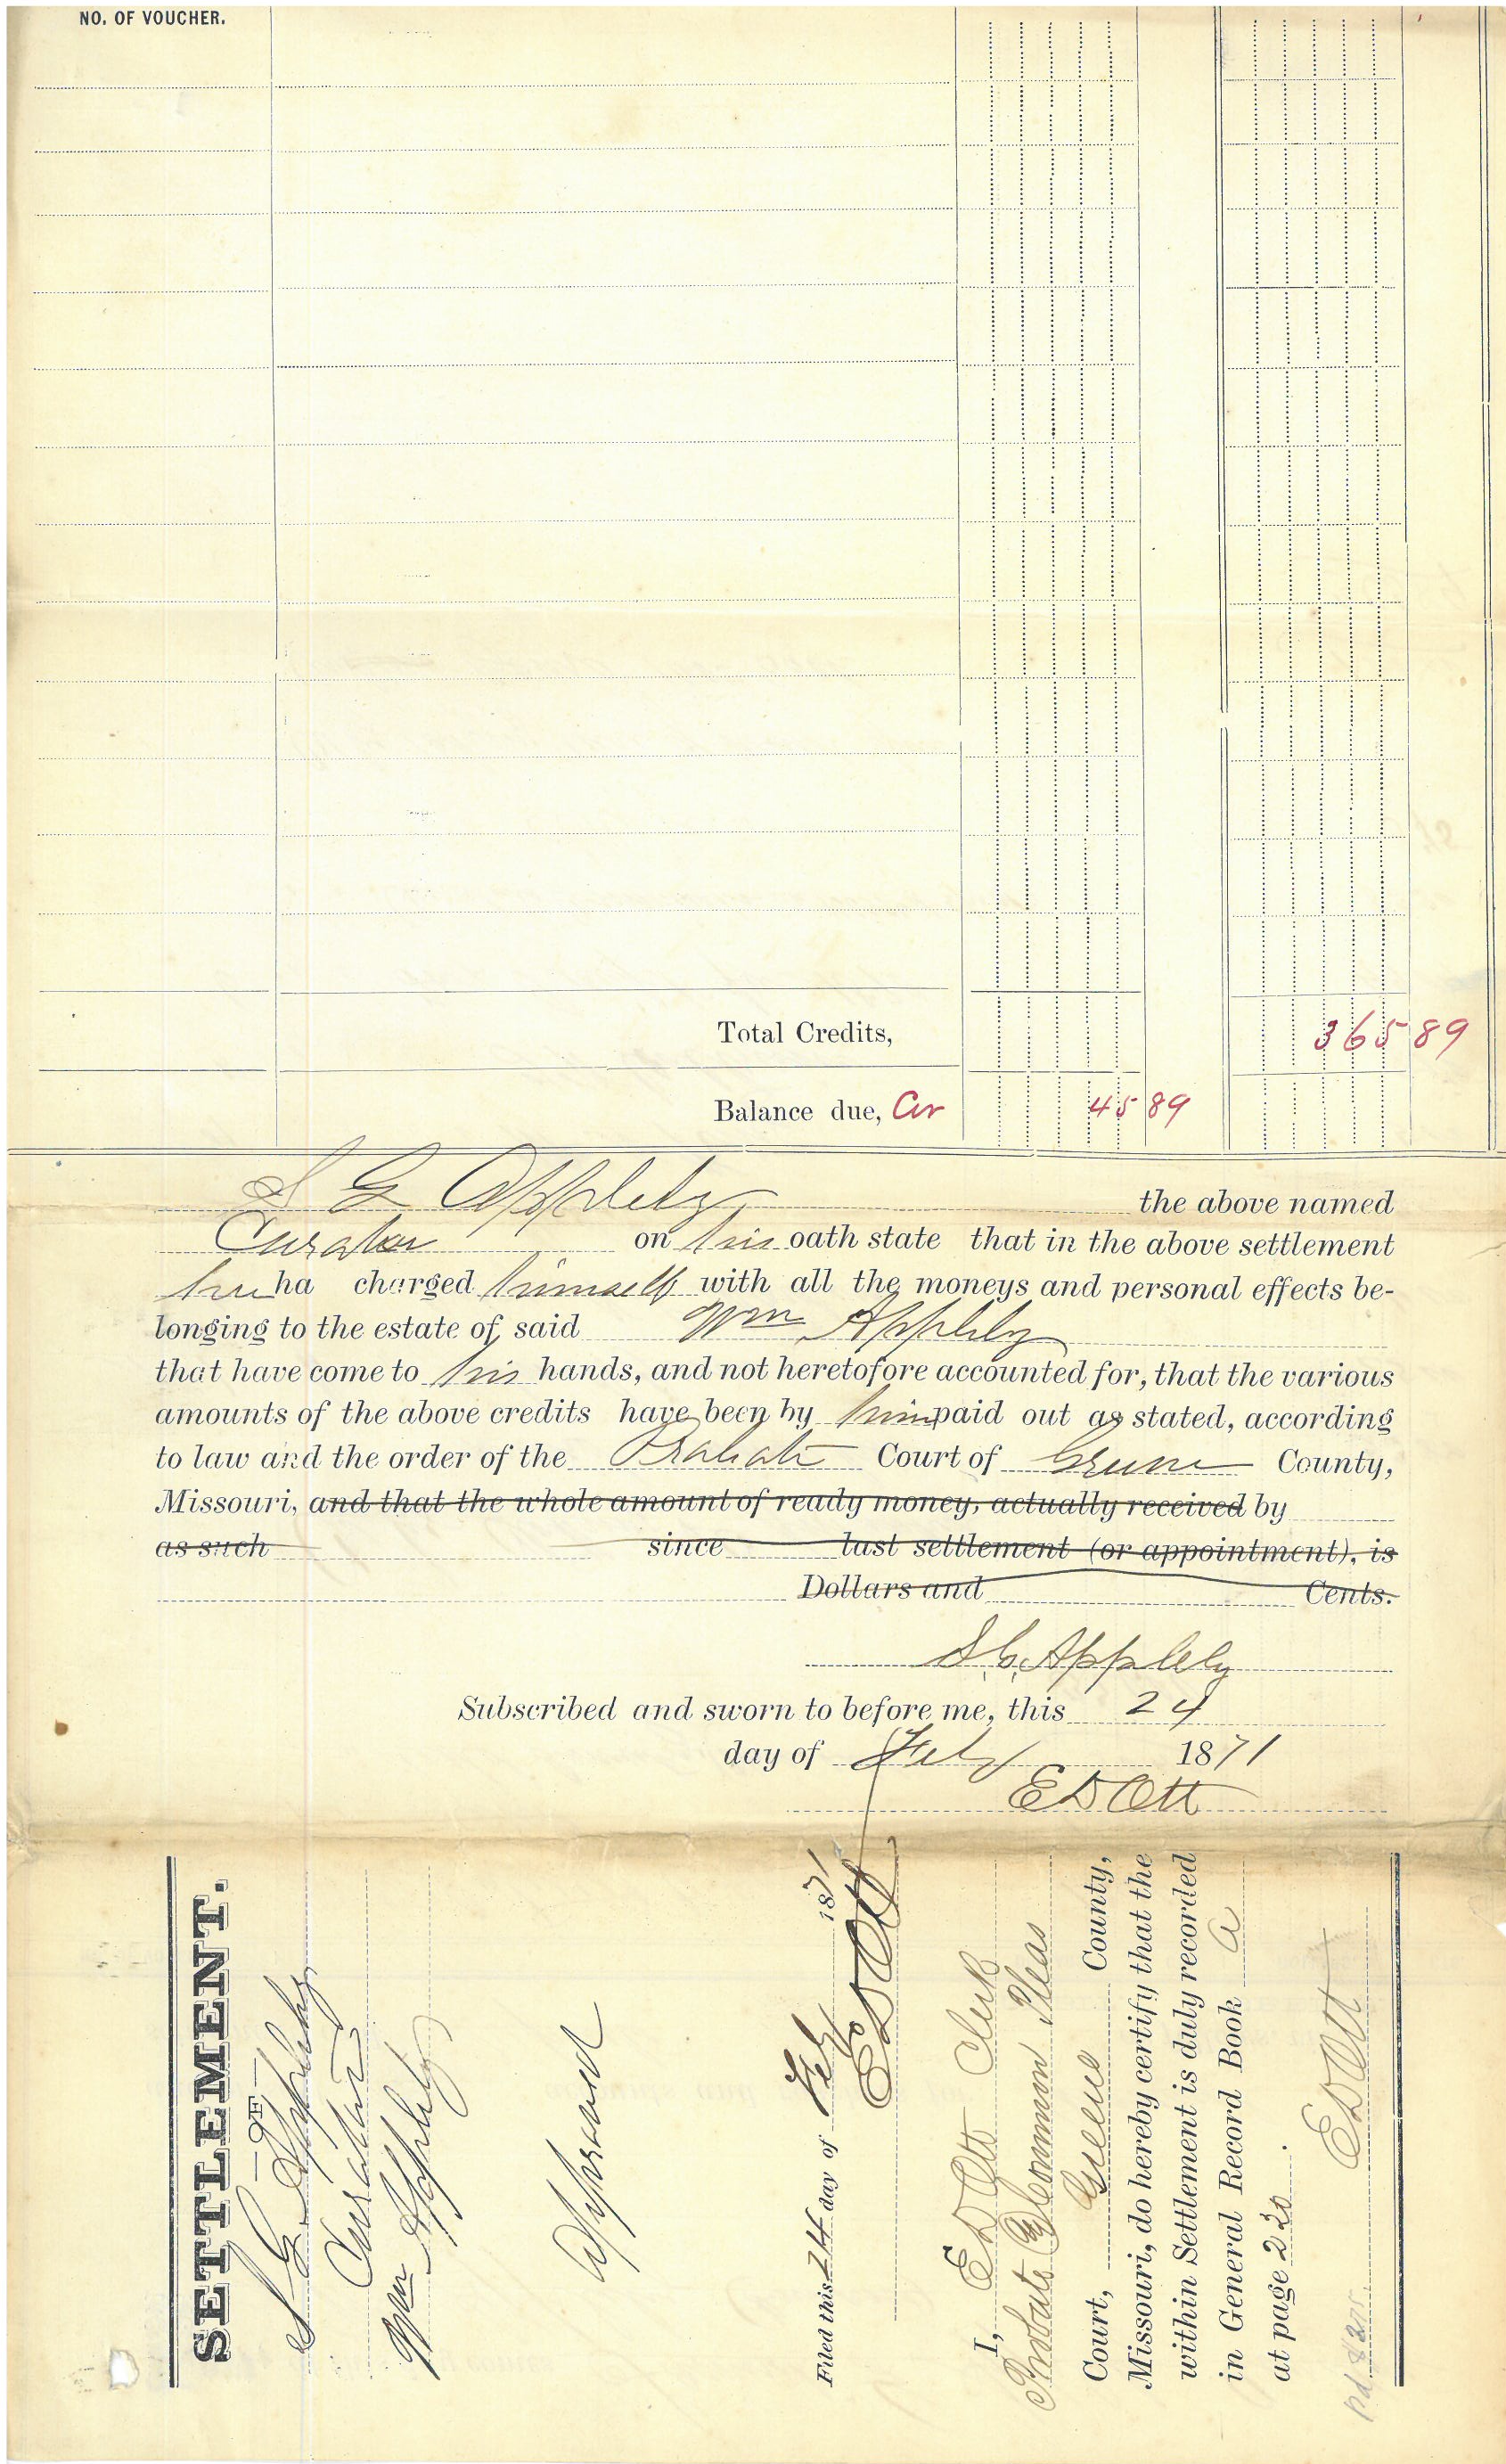 NO. OF VOUCHER.
Total Credits, 365 89
Balance due, Cur 45 89
S G Appleby the above named
Curator on his oath state that in the above settlement
he ha charged himself with all the moneys and personal effects be-
longing to the estate of said Wm Appleby
that have come to his hands, and not heretofore accounted for, that the various
amounts of the above credits have been by him paid out as stated, according
to law and the order of the Probate Court of Greene County,
Missouri, and that the whole amount of ready money, actually received by
as such since last settlement (or appointment), is
Dollars and Cents.
S. G. Appleby
Subscribed and sworn to before me, this 24
day of Feby 1871
E D Ott
SETTLEMENT.
—OF—
S G Appleby
Curator
Wm Appleby
Approved
Filed this 24 day of Feby 1871
E D Ott
I, E D Ott Clerk
Probate & Common Pleas
Court, Greene County,
Missouri, do hereby certify that the
within Settlement is duly recorded
in General Record Book A
at page 220.
E D Ott
pd